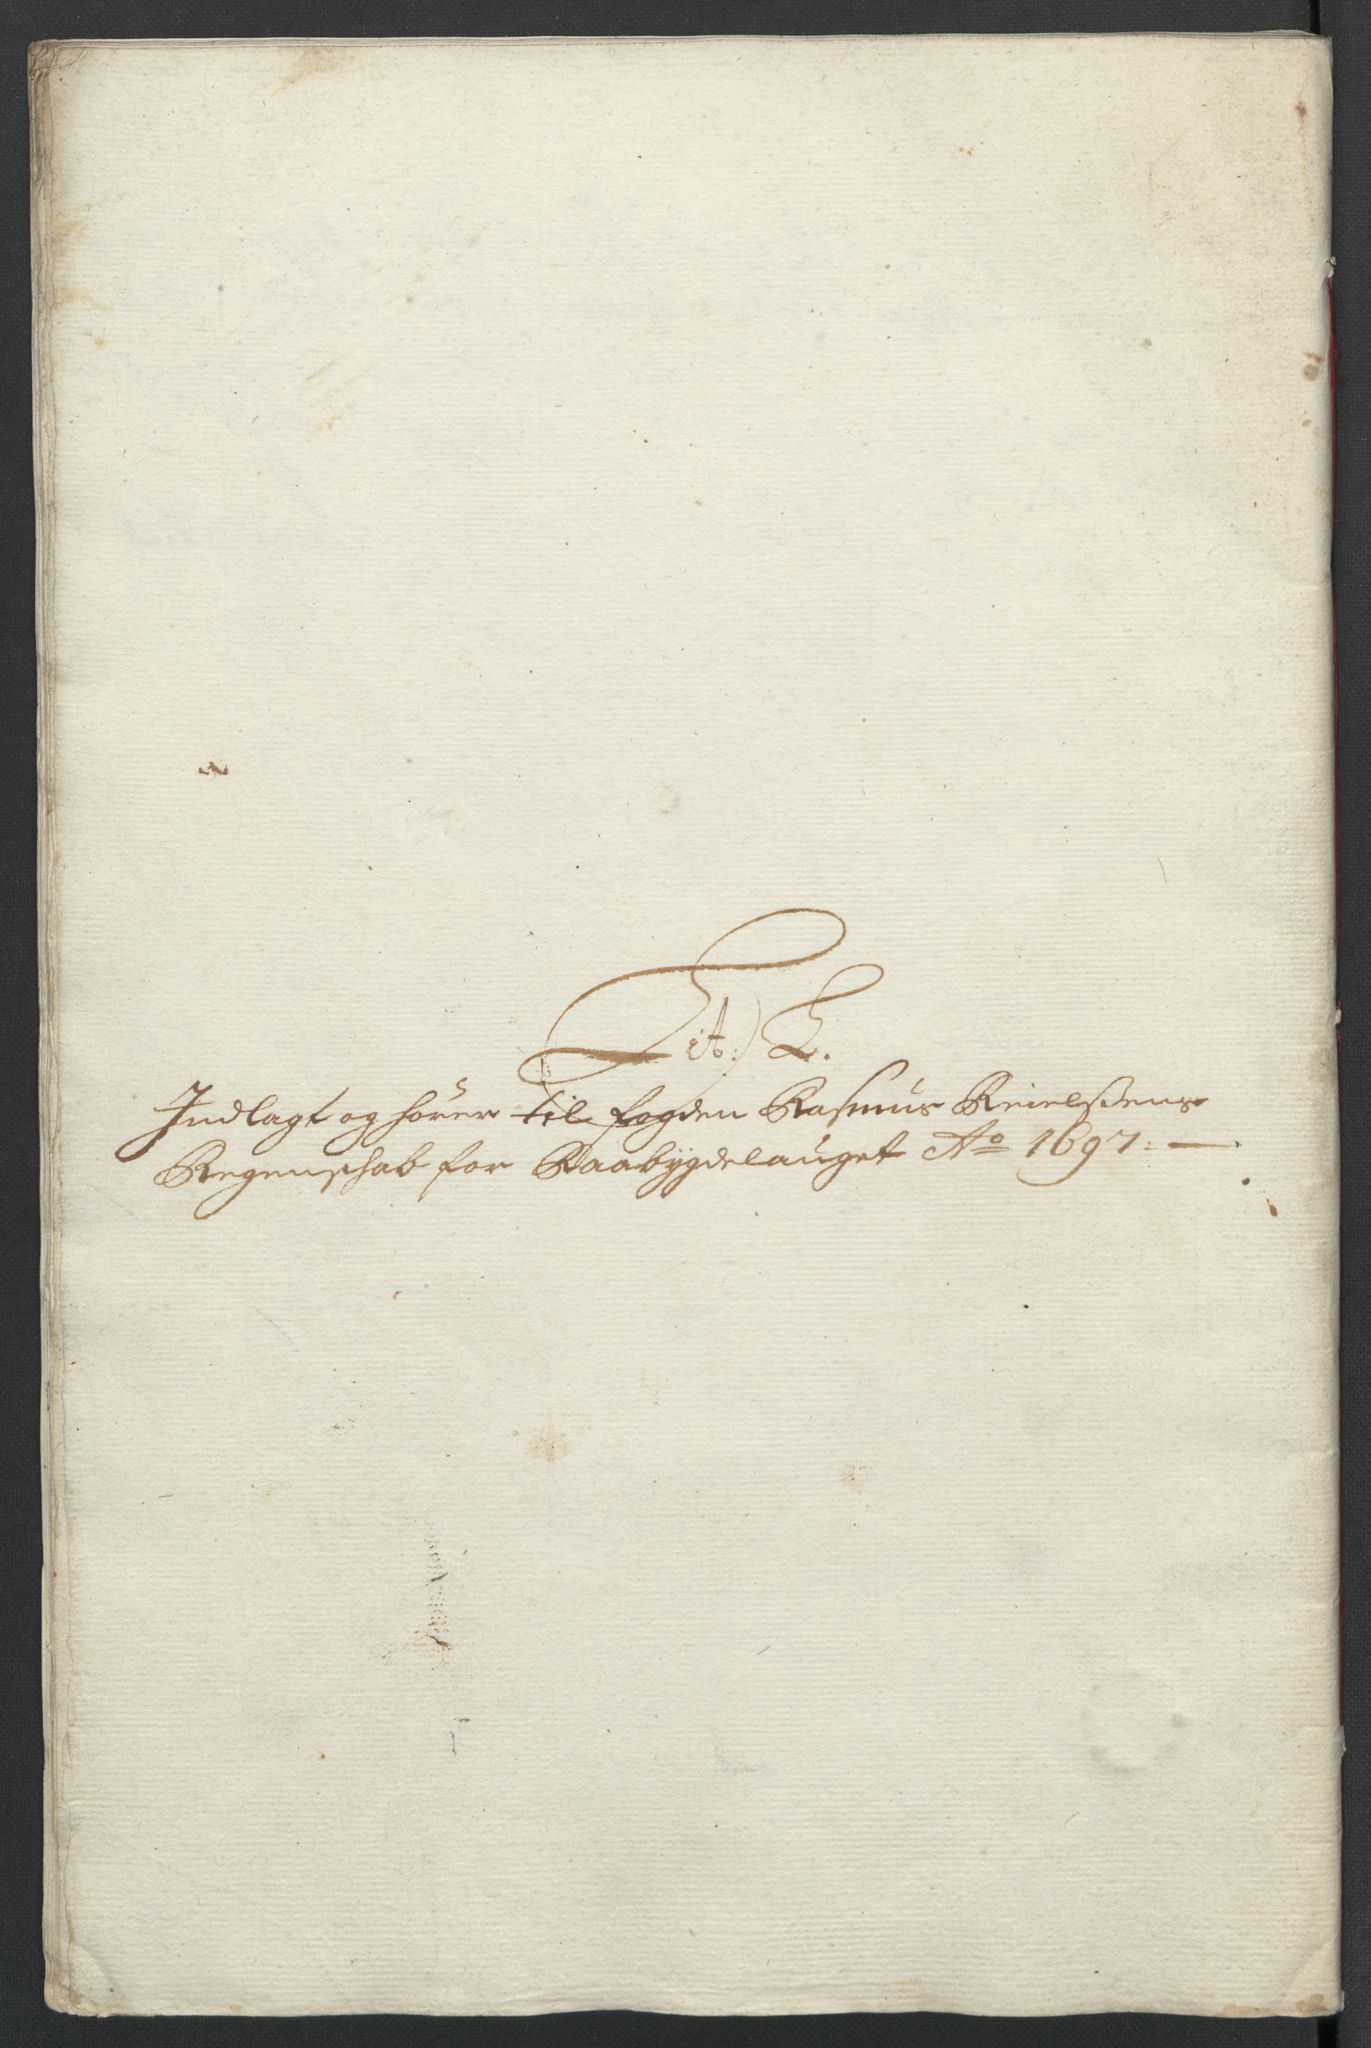 Lit:) L.
Indlagt og hører til fogden Rasmus Keielssens
Regenschab for Raabygdelauget Ao 1697: —